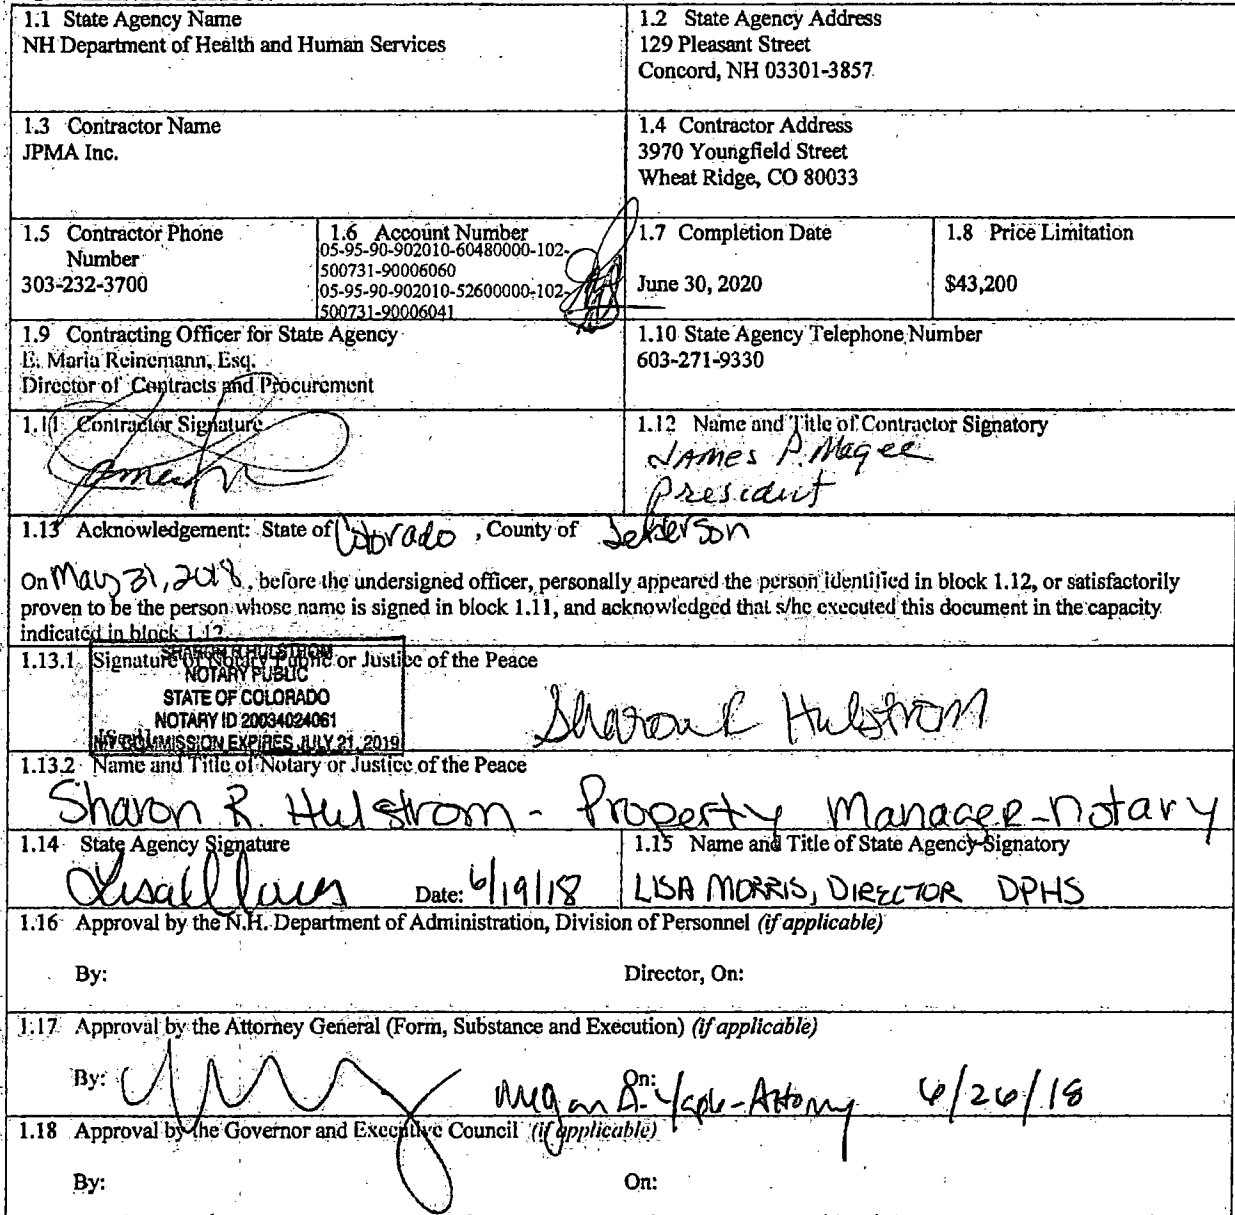 1.1 State Agency Name
NH Department of Health and Human Services
1.2 State Agency Address
129 Pleasant Street
Concord, NH 03301-3857
1.3 Contractor Name
JPMA Inc.
1.4 Contractor Address
3970 Youngfield Street
Wheat Ridge, CO 80033
1.5 Contractor Phone
Number
303-232-3700
1.6 Account Number
05-95-90-902010-60480000-102-
500731-90006060
05-95-90-902010-52600000-102-
500731-90006041
1.7 Completion Date
June 30, 2020
1.8 Price Limitation
$43,200
1.9 Contracting Officer for State Agency
E. Maria Reinemann, Esq.
Director of Contracts and Procurement
1.10 State Agency Telephone Number
603-271-9330
1.11 Contractor Signature
1.12 Name and Title of Contractor Signatory
James P. Magee
President
1.13 Acknowledgement: State of Colorado, County of Jefferson
On May 31, 2018, before the undersigned officer, personally appeared the person identified in block 1.12, or satisfactorily
proven to be the person whose name is signed in block 1.11, and acknowledged that s/he executed this document in the capacity
indicated in block 1.12.
1.13.1 Signature of Notary Public or Justice of the Peace
SHARON R HULSTROM
NOTARY PUBLIC
STATE OF COLORADO
NOTARY ID 20034024061
MY COMMISSION EXPIRES JULY 21, 2019
Sharon R Hulstrom
1.13.2 Name and Title of Notary or Justice of the Peace
Sharon R. Hulstrom - Property Manager-notary
1.14 State Agency Signature
Date: 6/19/18
1.15 Name and Title of State Agency Signatory
LISA MORRIS, DIRECTOR DPHS
1.16 Approval by the N.H. Department of Administration, Division of Personnel (if applicable)
By: Director, On:
1.17 Approval by the Attorney General (Form, Substance and Execution) (if applicable)
By: On:
Megan A. Yaple-Attorney 6/26/18
1.18 Approval by the Governor and Executive Council (if applicable)
By: On: